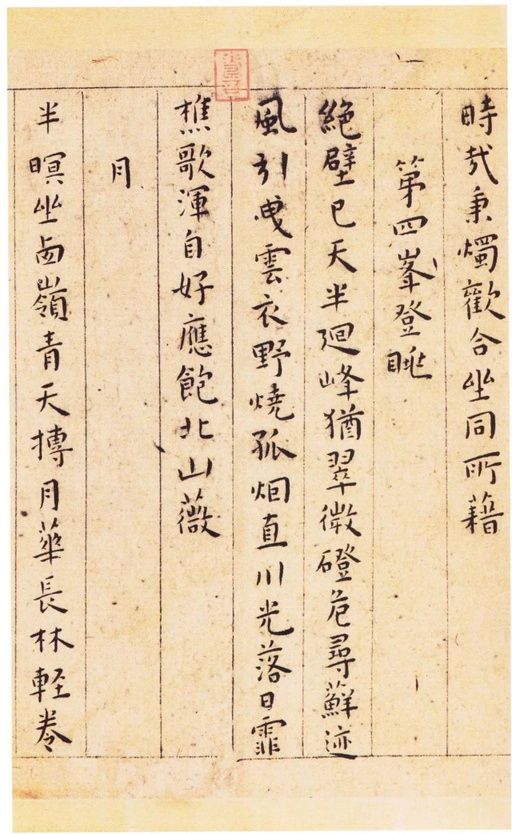 時哉秉燭歡合坐同所藉
第四峯登眺
絕壁已天半廻峰猶翠微磴危尋蘚迹
風引曳雲衣野燒孤烟直川光落日霏
樵歌渾自好應飽北山薇
月
半暝坐西嶺青天摶月華長林輕卷